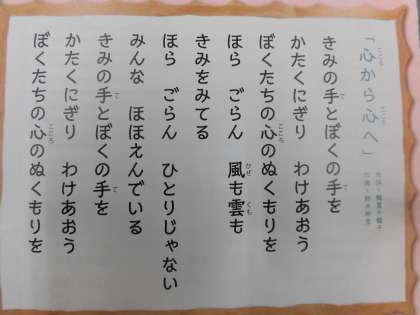 「心から心へ」
きみの手とぼくの手を
かたくにぎり　わけあおう
ぼくたちの心のぬくもりを
ほら　ごらん　風も雲も
きみをみてる
ほら　ごらん　ひとりじゃない
みんな　ほほえんでいる
きみの手とぼくの手を
かたくにぎり　わけあおう
ぼくたちの心のぬくもりを